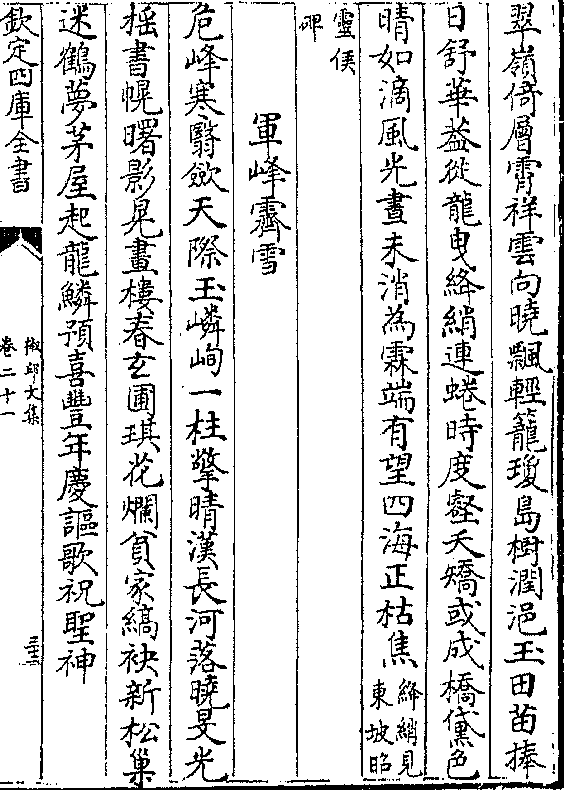 翠嶺倚層霄祥雲向曉飄輕籠瓊島樹潤浥玉田苗捧
日舒華蓋從龍曳絳綃連蜷時度壑夭矯或成橋黛色
晴如滴風光晝未消為霖端有望四海正枯焦絳綃見
東坡昭
靈侯
碑
軍峰霽雪
危峰寒翳斂天際玉嶙峋一柱擎晴漢長河落曉旻光
搖書幌曙影晃畫樓春玄圃琪花爛貧家縞袂新松巢
迷鶴夢茅屋起龍鱗預喜豐年慶謳歌祝聖神
欽定四庫全書
椒邱文集
卷二十一